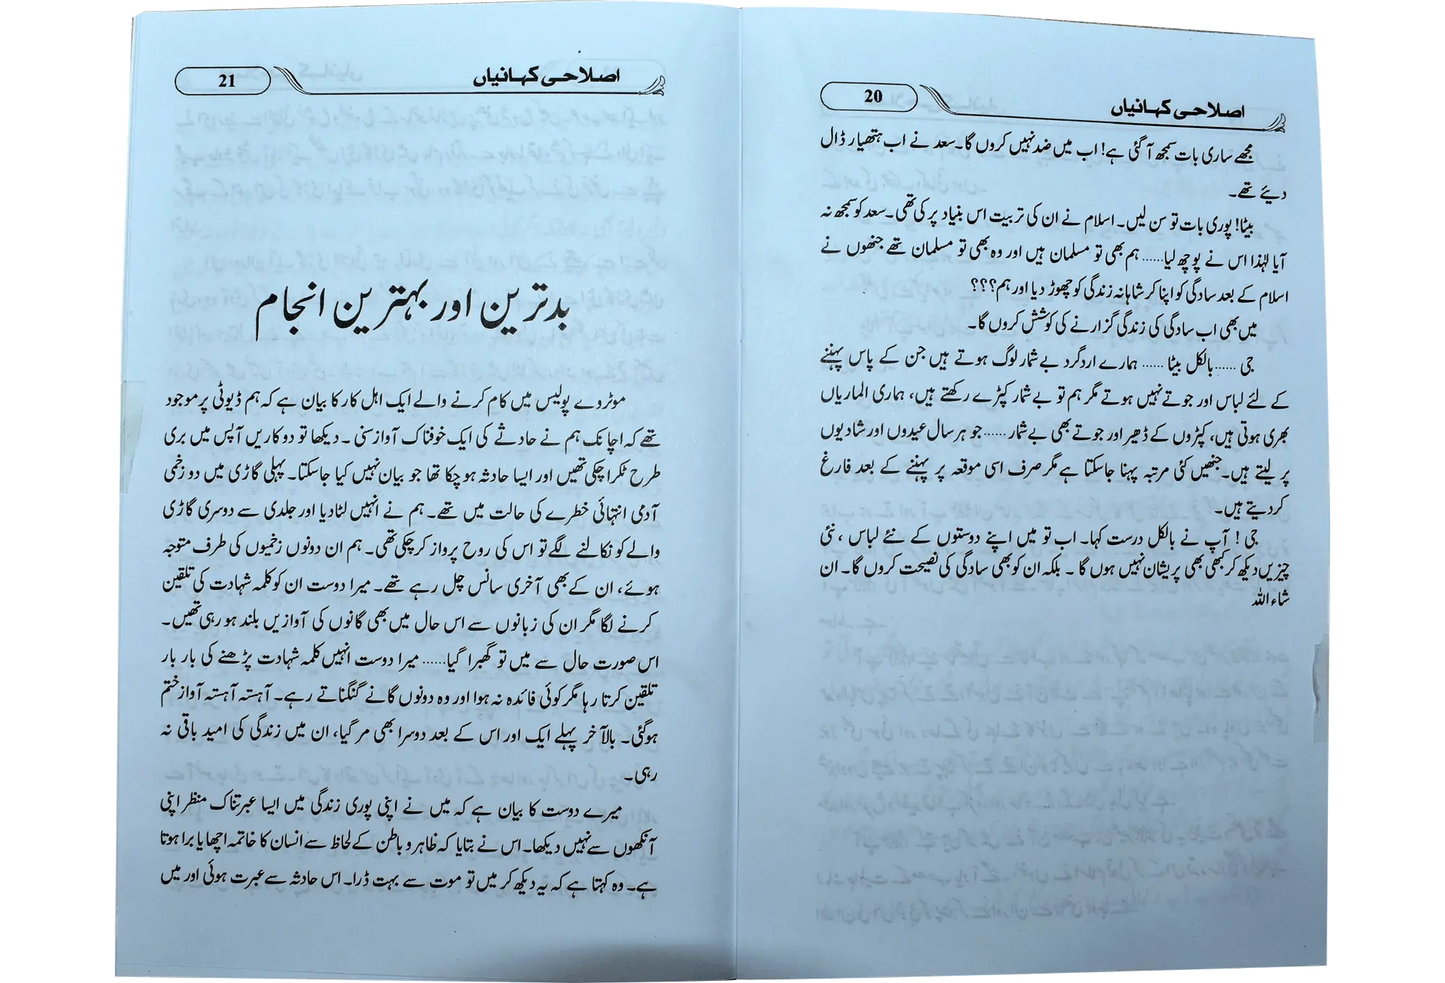 20
اصلاحی کہانیاں
مجھے ساری بات سمجھ آ گئی ہے! اب میں ضد نہیں کروں گا۔ سعد نے اب ہتھیار ڈال
دیئے تھے۔
بیٹا! پوری بات تو سن لیں۔ اسلام نے ان کی تربیت اس بنیاد پر کی تھی۔ سعد کو سمجھ نہ
آیا لہٰذا اس نے پوچھ لیا...... ہم بھی تو مسلمان ہیں اور وہ بھی تو مسلمان تھے جنھوں نے
اسلام کے بعد سادگی کو اپنا کر شاہانہ زندگی کو چھوڑ دیا اور ہم؟؟؟
میں بھی اب سادگی کی زندگی گزارنے کی کوشش کروں گا۔
جی ...... بالکل بیٹا ...... ہمارے اردگرد بے شمار لوگ ہوتے ہیں جن کے پاس پہننے
کے لئے لباس اور جوتے نہیں ہوتے مگر ہم تو بے شمار کپڑے رکھتے ہیں، ہماری الماریاں
بھری ہوتی ہیں، کپڑوں کے ڈھیر اور جوتے بھی بے شمار ...... جو ہر سال عیدوں اور شادیوں
پر لیتے ہیں۔ جنھیں کئی مرتبہ پہنا جاسکتا ہے مگر صرف اسی موقعہ پر پہننے کے بعد فارغ
کردیتے ہیں۔
جی ! آپ نے بالکل درست کہا۔ اب تو میں اپنے دوستوں کے نئے لباس ، نئی
چیزیں دیکھ کر کبھی بھی پریشان نہیں ہوں گا ۔ بلکہ ان کو بھی سادگی کی نصیحت کروں گا۔ ان
شاء اللہ
21
اصلاحی کہانیاں
بدترین اور بہترین انجام
موٹروے پولیس میں کام کرنے والے ایک اہل کار کا بیان ہے کہ ہم ڈیوٹی پر موجود
تھے کہ اچانک ہم نے حادثے کی ایک خوفناک آواز سنی ۔ دیکھا تو دو کاریں آپس میں بری
طرح ٹکرا چکی تھیں اور ایسا حادثہ ہو چکا تھا جو بیان نہیں کیا جاسکتا۔ پہلی گاڑی میں دو زخمی
آدمی انتہائی خطرے کی حالت میں تھے۔ ہم نے انہیں لٹادیا اور جلدی سے دوسری گاڑی
والے کو نکالنے لگے تو اس کی روح پرواز کر چکی تھی۔ ہم ان دونوں زخمیوں کی طرف متوجہ
ہوئے، ان کے بھی آخری سانس چل رہے تھے۔ میرا دوست ان کو کلمہ شہادت کی تلقین
کرنے لگا مگر ان کی زبانوں سے اس حال میں بھی گانوں کی آوازیں بلند ہو رہی تھیں۔
اس صورت حال سے میں تو گھبرا گیا...... میرا دوست انہیں کلمہ شہادت پڑھنے کی بار بار
تلقین کرتا رہا مگر کوئی فائدہ نہ ہوا اور وہ دونوں گانے گنگناتے رہے۔ آہستہ آہستہ آواز ختم
ہوگئی۔ بالآخر پہلے ایک اور اس کے بعد دوسرا بھی مر گیا، ان میں زندگی کی امید باقی نہ
رہی۔
میرے دوست کا بیان ہے کہ میں نے اپنی پوری زندگی میں ایسا عبرتناک منظر اپنی
آنکھوں سے نہیں دیکھا۔ اس نے بتایا کہ ظاہر و باطن کے لحاظ سے انسان کا خاتمہ اچھا یا برا ہوتا
ہے۔ وہ کہتا ہے کہ یہ دیکھ کر میں تو موت سے بہت ڈرا۔ اس حادثہ سے عبرت ہوئی اور میں